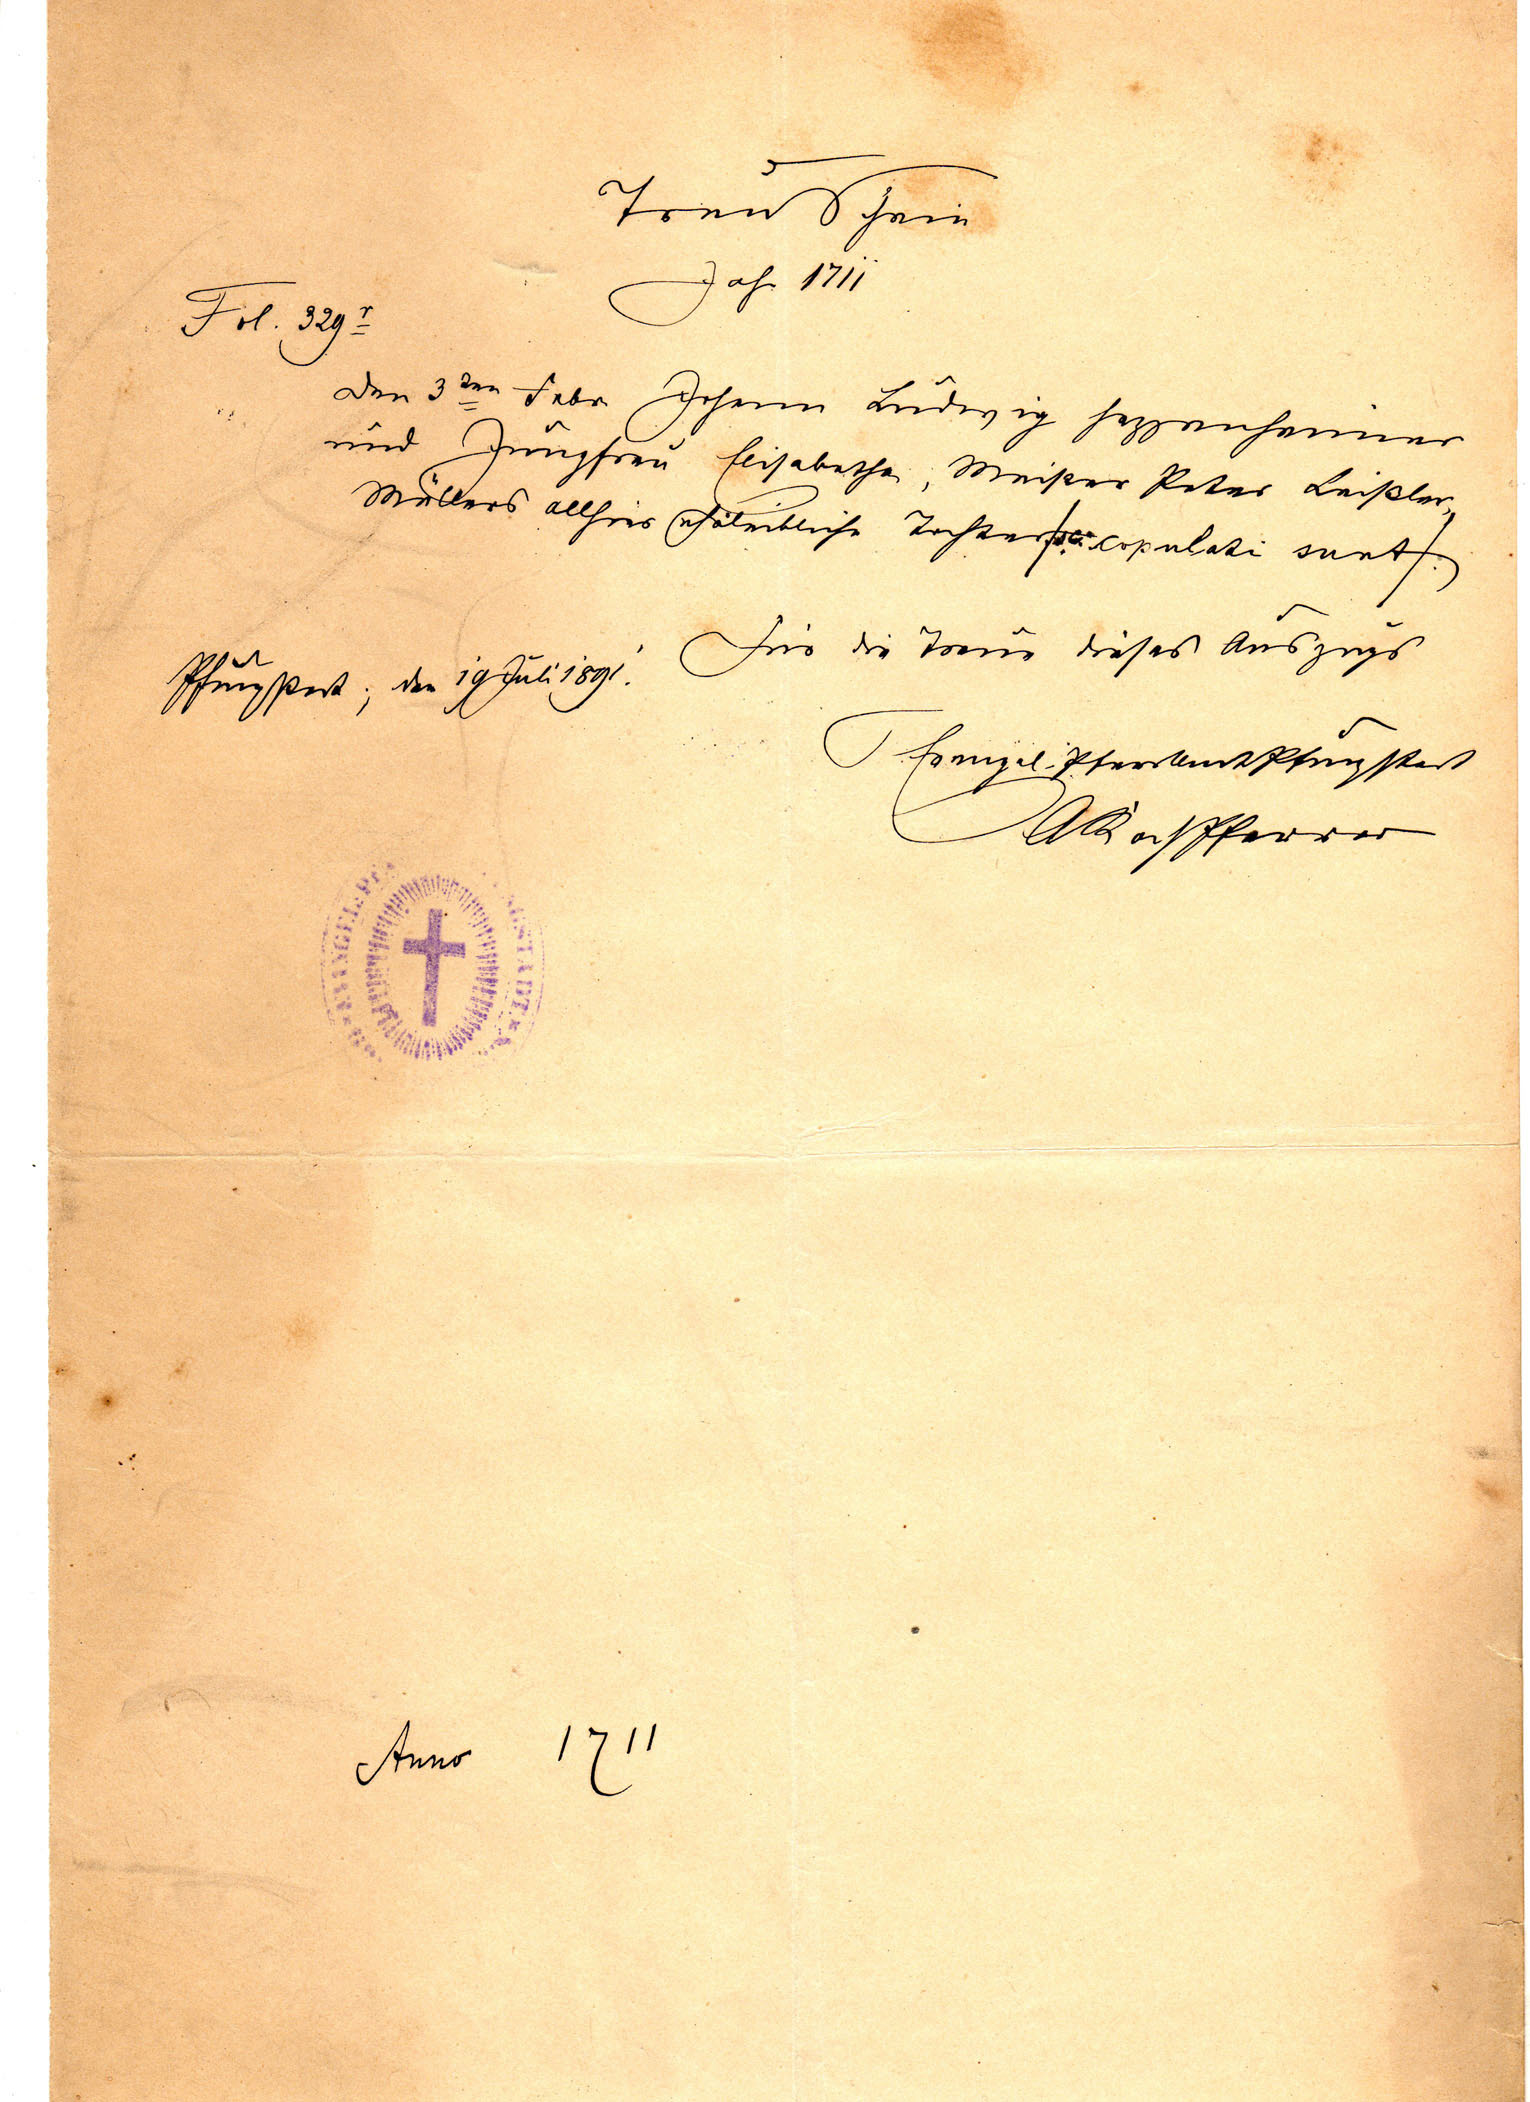 Trau Schein
Jahr 1711
Fol. 329r
Den 3ten Febr Johann Ludwig Hezzenheimer
und Jungfrau Elisabetha, Meister Peter Leißler,
Müllers allhier eheleibliche Tochter copulati sunt
Für die Treue dieses Auszugs
Pfungstadt, den 19 Juli 1891.
Evangel. Pfarramt Pfungstadt
Koch Pfarrer
EVANGEL. PF
GSTADT
Anno 1711